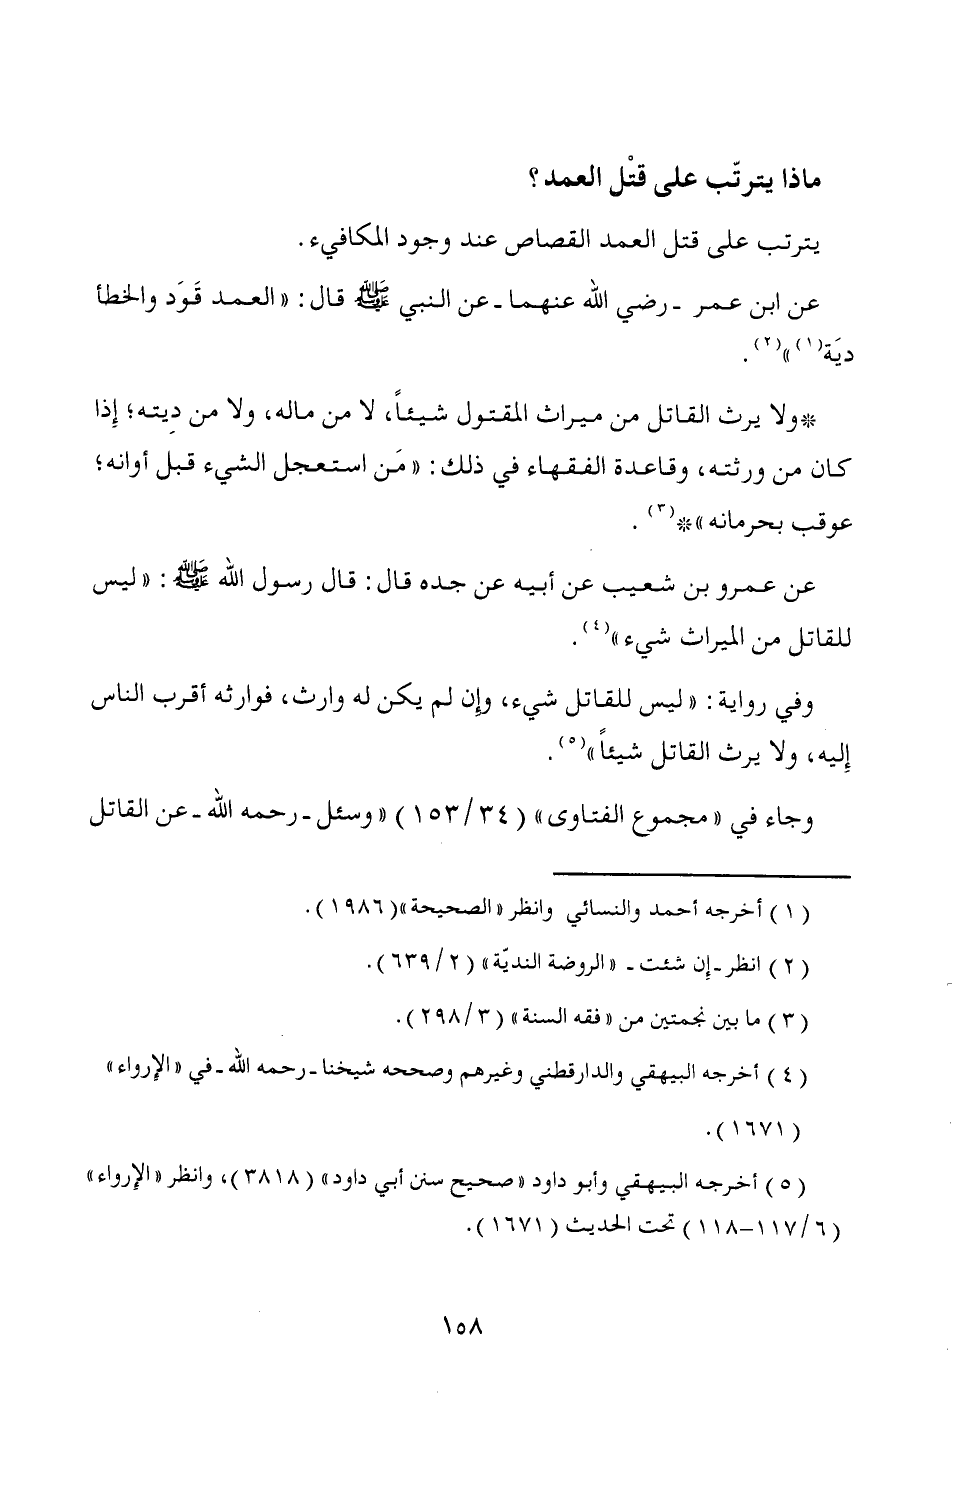 ماذا يترتّب على قتْل العمد؟
يترتب على قتل العمد القصاص عند وجود المكافيء.
عن ابن عمر ـ رضي الله عنهما ـ عن النبي ﷺ قال: «العمد قَوَد والخطأ
ديَة(١)»(٢).
*ولا يرث القاتل من ميراث المقتول شيئاً، لا من ماله، ولا من ديته؛ إِذا
كان من ورثته، وقاعدة الفقهاء في ذلك: «مَن استعجل الشيء قبل أوانه؛
عوقب بحرمانه»*(٣).
عن عمرو بن شعيب عن أبيه عن جده قال: قال رسول الله ﷺ: «ليس
للقاتل من الميراث شيء»(٤).
وفي رواية: «ليس للقاتل شيء، وإِن لم يكن له وارث، فوارثه أقرب الناس
إِليه، ولا يرث القاتل شيئاً»(٥).
وجاء في «مجموع الفتاوى» (٣٤/١٥٣) «وسئل ـ رحمه الله ـ عن القاتل
(١) أخرجه أحمد والنسائي وانظر «الصحيحة»(١٩٨٦).
(٢) انظر ـ إِن شئت ـ «الروضة النديّة» (٢/٦٣٩).
(٣) ما بين نجمتين من «فقه السنة» (٣/٢٩٨).
(٤) أخرجه البيهقي والدارقطني وغيرهم وصححه شيخنا ـ رحمه الله ـ في «الإِرواء»
(١٦٧١).
(٥) أخرجه البيهقي وأبو داود «صحيح سنن أبي داود» (٣٨١٨)، وانظر «الإِرواء»
(٦/١١٧–١١٨) تحت الحديث (١٦٧١).
١٥٨